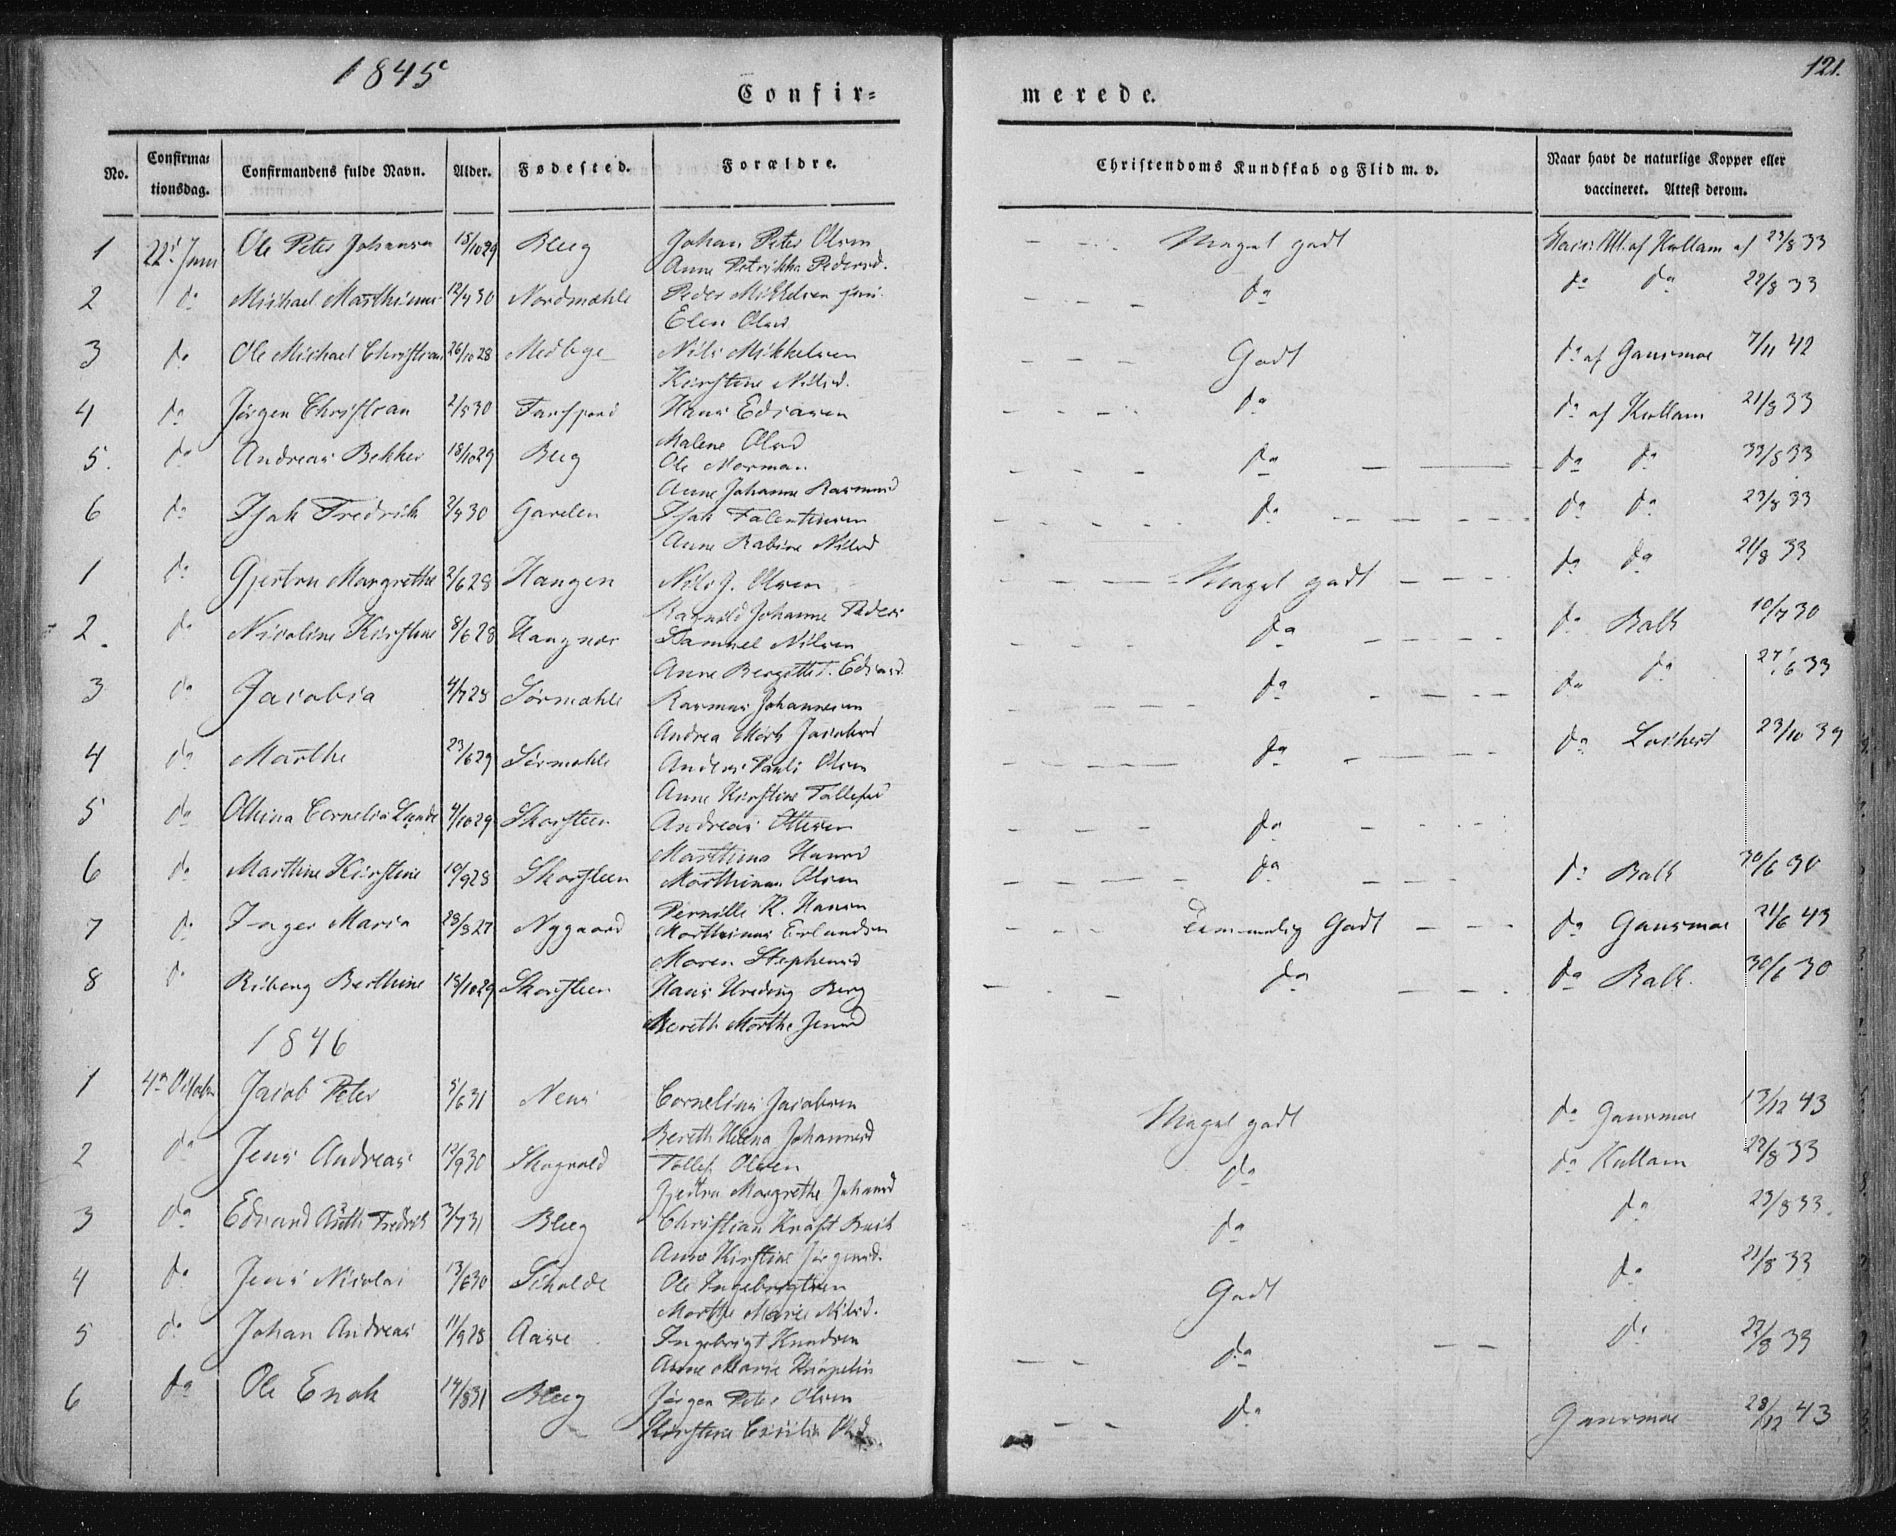 1845
121.
Confir=
merede.
No. Confirma=tionsdag. Confirmandens fulde Navn. Alder. Fødested. Forældre. Christendoms Kundskab og Flid m. v. Naar havt de naturlige Kopper eller vaccineret. Attest derom.
1 22d Juni Ole Peter Johansen 15/10 29 Bleeg Johan Peter Olsen Meget godt af Kullam af 23/8 33
Anne Petrikka Pedersd.
2 do Michael Marthinus 12/4 30 Nordmæhle Peder Mikkelsen do do do 22/8 33
Elen Olsd
3 do Ole Michael Christian 26/10 28 Medbye Nils Mikkelsen Godt do af Gaursmoe 7/11 42
Kirstine Nilsd.
4 do Jørgen Christian 2/5 30 Hans Ediasen do do af Kullam 21/8 33
Malene Olsd
5. do Andreas Bekker 18/10 29 Bleeg Ole Norman do do do 33/8 33
Anne Johanne Rasmusd
6 do Isak Fredrik 2/4 30 Garelen Isak Falentinsen do do do 23/8 33
Anne Rabine Nilsd
1 do Gjertru Margrethe 2/6 28 Haugen Nils J. Olsen Meget godt do do 21/8 33
Ragnild Johanne Peders
2 do Nicoline Kirstine 8/6 28 Haugnæs Samuel Nilsen do do Balk 10/7 30
Anne Bergitte T. Ediasd.
3 do Jacobia 4/7 28 Sørmæhle Rasmus Johannesen do do do 27/6 33
Andrea Mörk Jacobsd
4 do Marthe 23/6 29 Sørmæhle Anders Pauli Olsen do do Lochert 23/10 39
Anne Kirstine Tollefsd
5 do Olhina Cornelia Lunde 4/10 29 Skorsteen Andreas Ottesen do
Marthina Hansd
6 do Marthine Kirstine 10/9 28 Skorsteen Marthinus Olsen do do Balk 30/6 30
Pernille K. Hansn
7 do Inger Maria 28/3 27 Nygaard Marthinus Erlandsen Temmelig Godt do Gaursmoe 21/6 43
Maren Stephensd
8 do Riborg Berthine 15/10 29 Skorsteen Hans Hreding Berg do do Balk. 30/6 30
Bereth Marthe Jensd
1846
1 4de October Jacob Peter 5/6 31 Næss Cornelius Jacobsen Meget godt do Gaursmoe 13/12 43
Bereth Helena Johannesd
2 do Jens Andreas 12/9 30 Skogvold Tollef Olsen do do Kullam 22/8 33
Gjertru Margrethe Johansd
3 do Edvard Fredrik 3/7 31 Bleeg Christian Kraft do do 23/8 33.
Anne Kirstine Jørgensd.
4 do Jens Nicolai 13/6 30 Ole Ingebrigtsen Godt do 21/8 33
Marthe Marie Nilsd.
5 do Johan Andreas 11/9 28 Aase Ingebrigt Knudsen do do 22/8 33
Anne Maria
6 do Ole Enok 14/8 31 Bleeg Jørgen Peter Olsen do Gaursmoe 28/12 43
Kirstine Cicilia Olsd